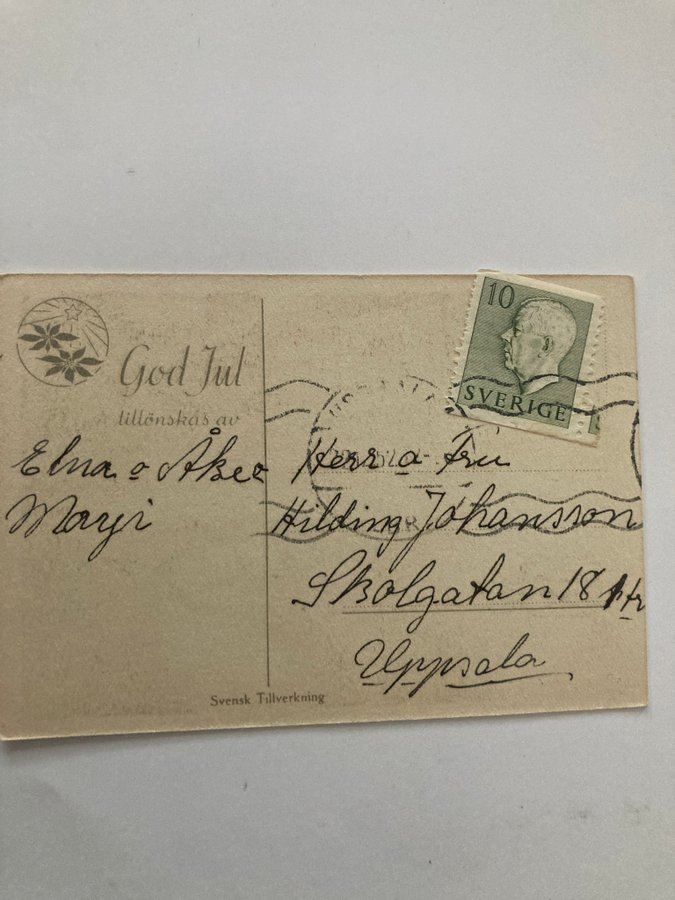 God Jul
tillönskas av
Elna o Åke o
10
SVERIGE
Herr o Fru
Hilding Johansson
Skolgatan 18
Uppsala
Svensk Tillverkning